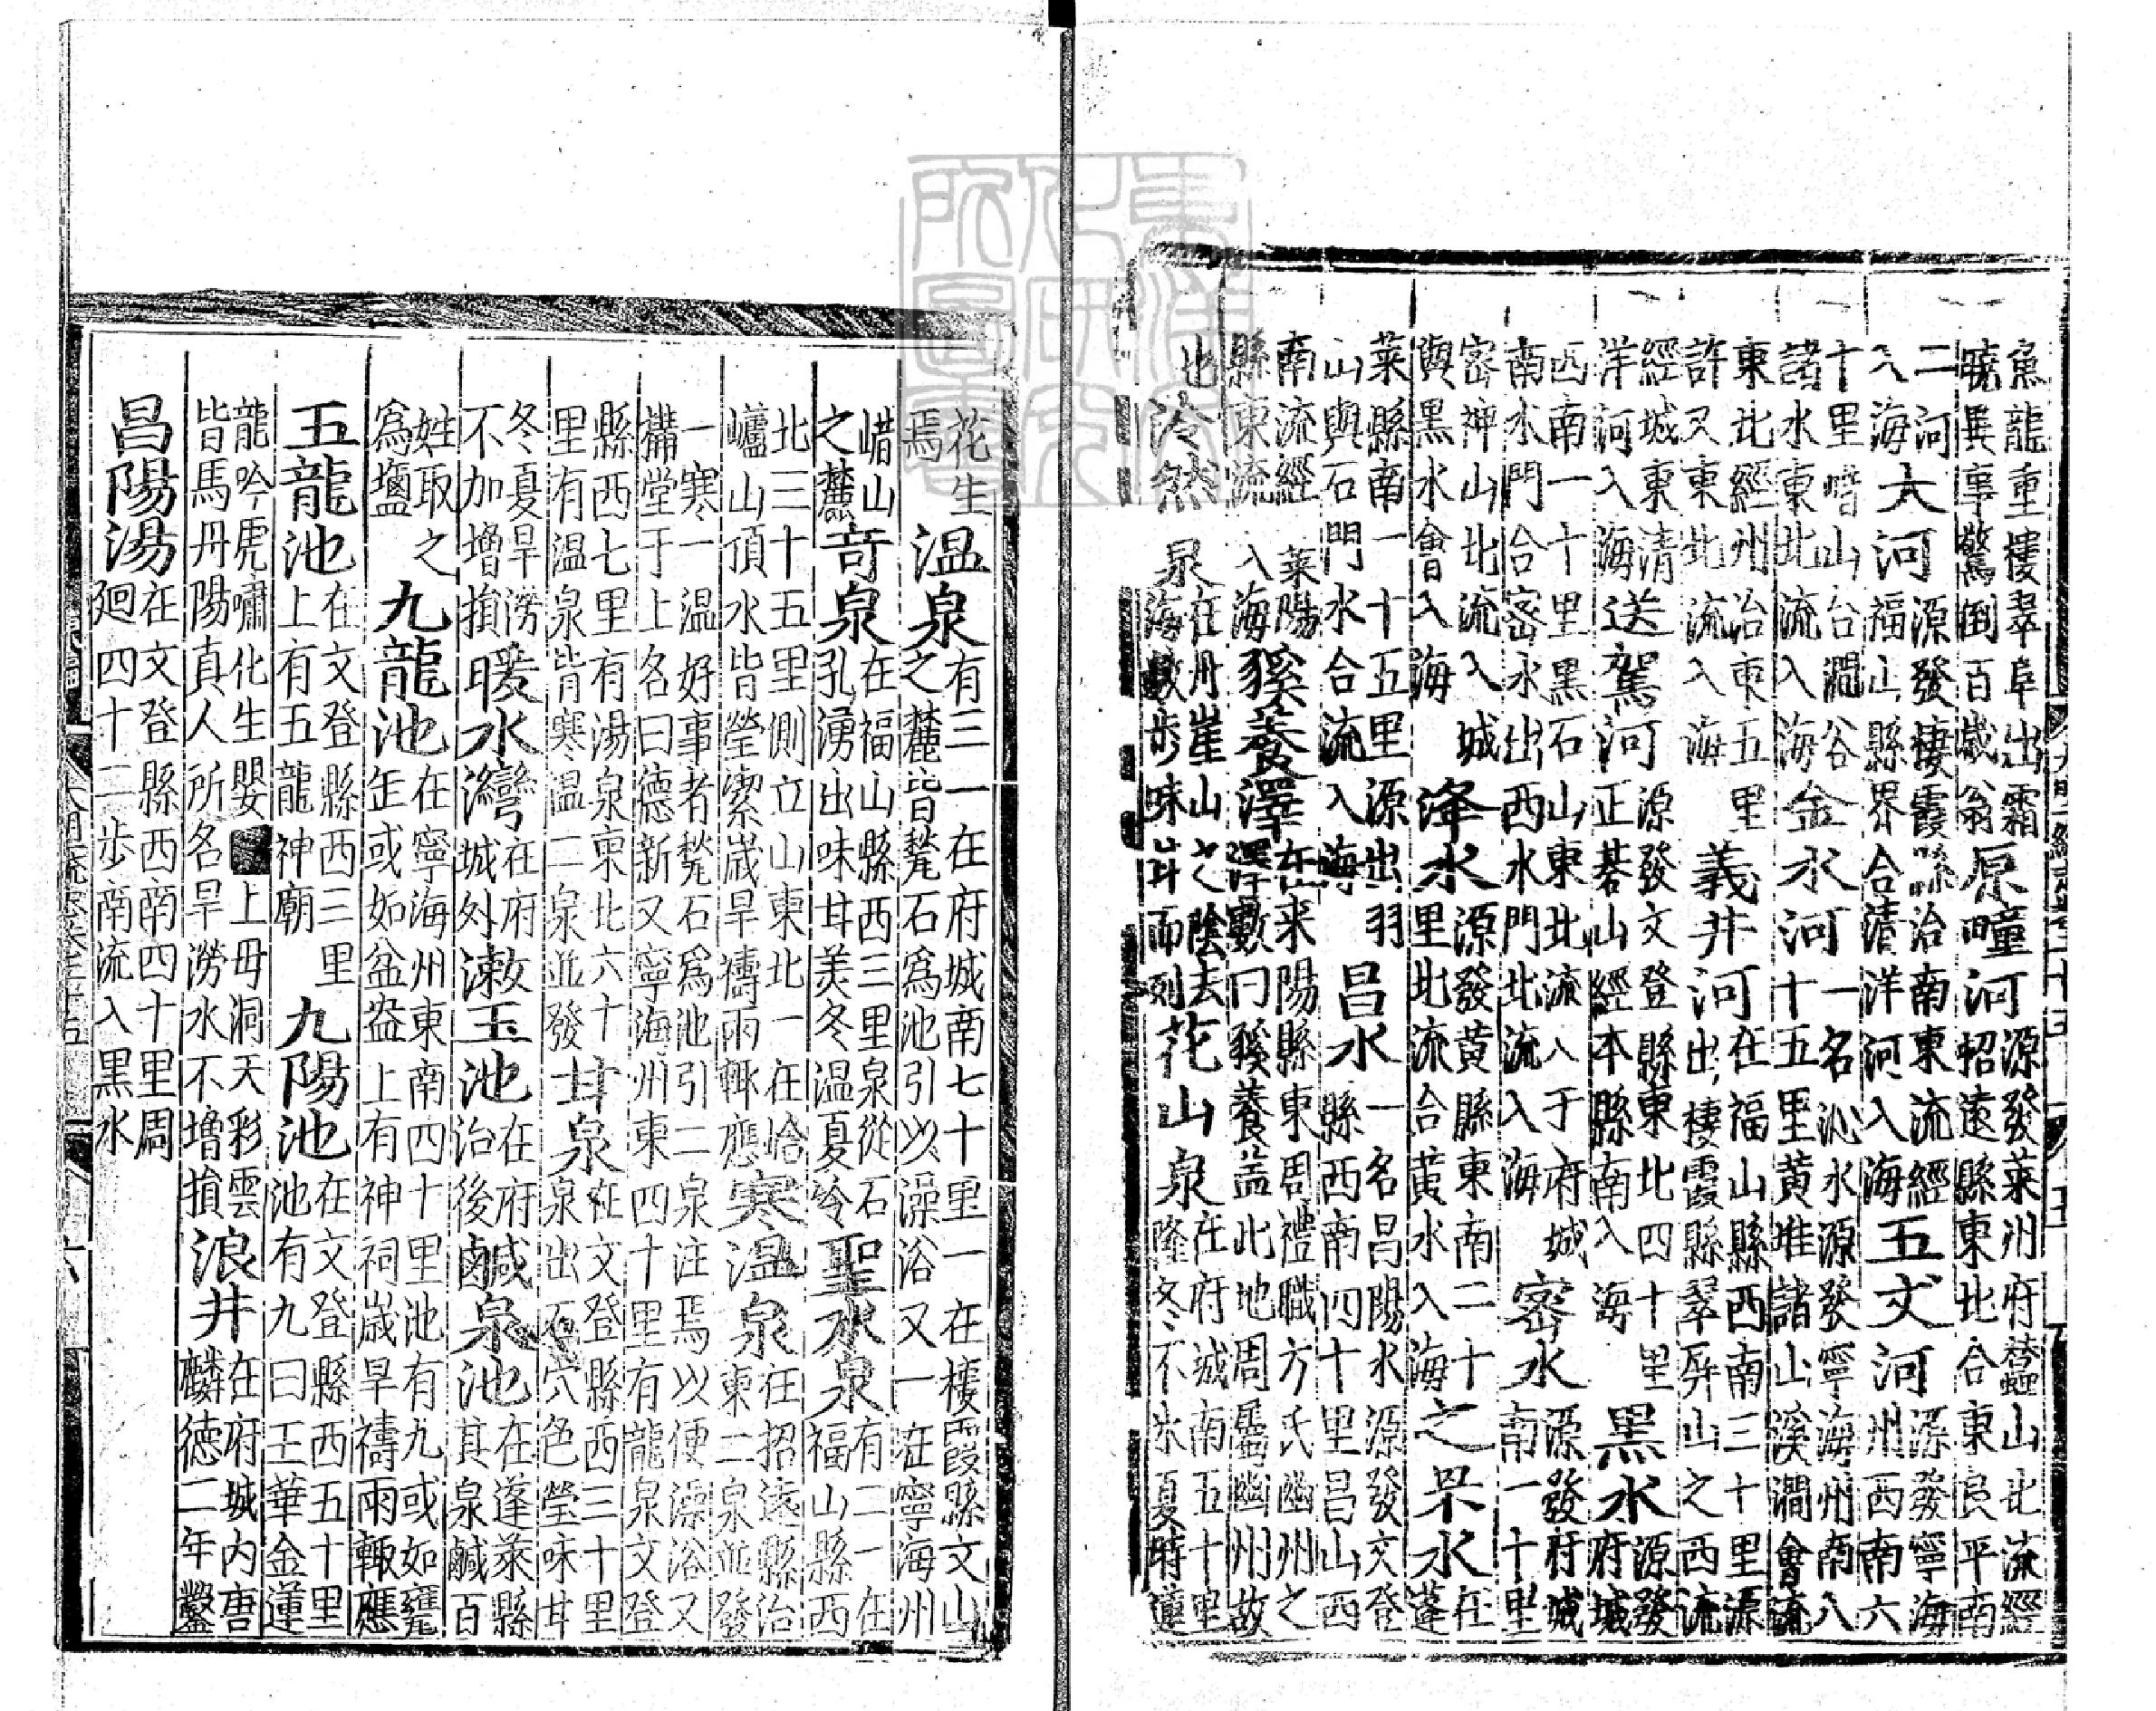 魚龍重樓翠阜出霜
曉異事驚倒百歲翁
原疃河
源發萊州府蠶山北流經
招遠縣東北合東良平南
二河
入海
大河
源發棲霞縣治南東流經
福山縣界合清洋河入海
五丈河
源發寧海
州西南六
十里嵴山台澗谷
諸水東北流入海
金水河
一名沁水源發寧海州南八
十五里黃堆諸山溪澗會流
東北經州治東五里
許又東北流入海
義井河
在福山縣西南三十里源
出棲霞縣翠屏山之西流
經城東清
洋河入海
送駕河
源發文登縣東北四十里
正碁山經本縣南入海
黑水
源發
府城
西南一十里黑石山東北流入于府城
南水門合密水出西水門北流入海
密水
源發府城
南一十里
密神山北流入城
與黑水會入海
洚水
源發黃縣東南二十
里北流合黃水入海
之罘水
在
蓬
萊縣南一十五里源出羽
山與石門水合流入海
昌水
一名昌陽水源發文登
縣西南四十里昌山西
南流經萊陽
縣東流入海
豯養澤
在萊陽縣東周禮職方氏幽州之
澤藪曰豯養蓋此地周屬幽州故
也
冷然泉
在丹崖山之陰去
海數步味甘而冽
花山泉
在府城南五十里
隆冬不氷夏時遶
花生
焉
溫泉
有三一在府城南七十里一在棲霞縣文山
之麓皆甃石為池引以澡浴又一在寧海州
山
之麓
奇泉
在福山縣西三里泉從石
孔湧出味甘美冬溫夏冷
聖水泉
有二一在
福山縣西
北三十五里側立山東北一在
山頂水皆瑩潔歲旱禱雨輒應
寒溫泉
在招遠縣治
東二泉並發
一寒一溫好事者甃石為池引二泉注焉以便澡浴又
構堂于上名曰德新又寧海州東四十里有龍泉文登
縣西七里有湯泉東北六十
里有溫泉皆寒溫二泉並發
甘泉
在文登縣西三十里
泉出石穴色瑩味甘
冬夏旱澇
不加增損
暖水灣
在府
城外
漱玉池
在府
治後
鹹泉池
在蓬萊縣
其泉鹹百
姓取之
為鹽
九龍池
在寧海州東南四十里池有九或如甕
缶或如盆盎上有神祠歲旱禱雨輒應
五龍池
在文登縣西三里
上有五龍神廟
九陽池
在文登縣西五十里
池有九曰王華金蓮
龍吟虎嘯化生嬰上母洞天彩雲
皆馬丹陽真人所名旱澇水不增損
浪井
在府城內唐
麟德二年鑿
昌陽湯
在文登縣西南四十里周
廻四十二步南流入黑水